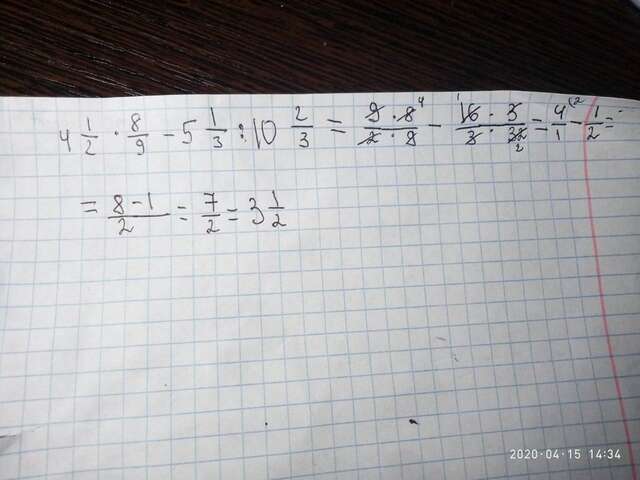 4 1/2 · 8/9 - 5 1/3 : 10 2/3 = 9 · 8 4/2 · 9 - 1 16 · 3/3 · 32 2 = 4/1 (2 - 1/2 =
= 8 - 1/2 = 7/2 = 3 1/2
2020-04-15 14:34